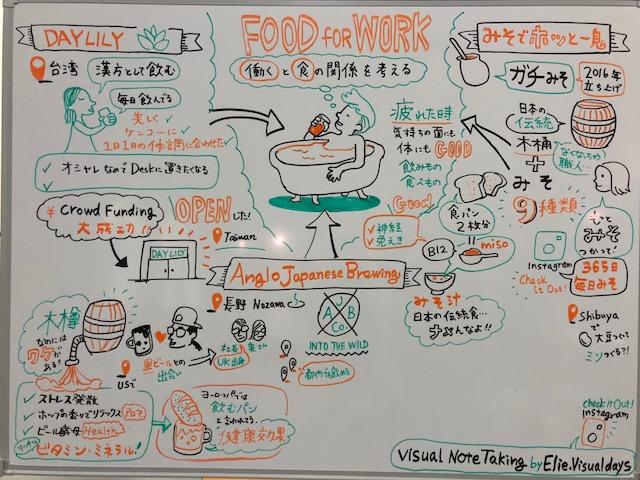 DAYLILY
台湾
漢方として飲む
毎日飲んでる
美しく
ケンコーに
1日1日の体調に合わせた
オシャレなのでDeskに置きたくなる
¥ Crowd Funding
大成功!
OPENした!
Taiwan
DAYLILY
FOOD FOR WORK
働くと食の関係を考える
疲れた時
気持ちの面にも
体にもGOOD
飲みもの
食べもの
Good
神経
免えき
みそでホッと一息
ガチみそ
2016年
立ち上げ
日本の
伝統
木桶
+
みそ
9種類
なくなちゃう
職人…
食パン
2枚分
B12
miso
みそ汁
日本の伝統食…
Instagram
Check
it Out!
もっと
みそ
つかって!
365日
毎日みそ
Shibuya
で
大豆つくって
ミソつくる?!
Anglo Japanese Brewing
長野 Nozawa
AJB
Co.
INTO THE WILD
木樽
なめには
ワケが
ある!!
USで
黒ビールとの
出会い
社長
奥さん
UK出身
都内でも飲める
ストレス発散
ホップの香りでリラックス
ビール酵母 Health
ビタミン・ミネラル!
ヨーロッパでは
飲むパン
と言われてる。
健康効果
check it Out!
Instagram
Visual Note Taking by Elie.Visualdays